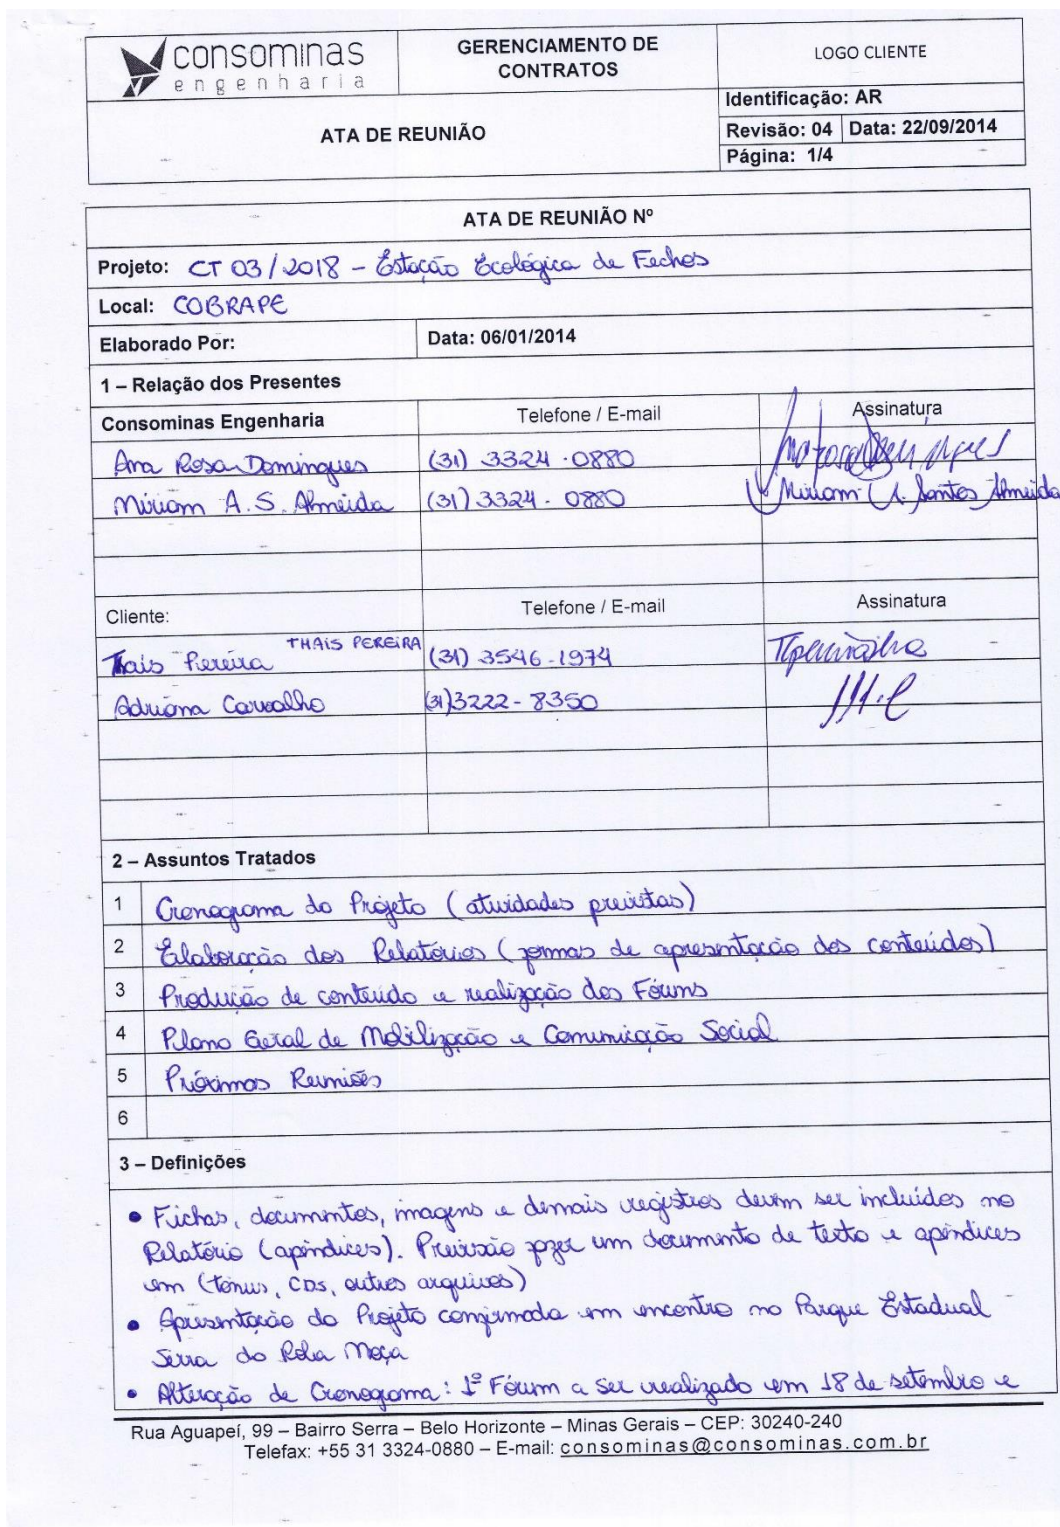 consominas
engenharia
GERENCIAMENTO DE
CONTRATOS
LOGO CLIENTE
ATA DE REUNIÃO
Identificação: AR
Revisão: 04 Data: 22/09/2014
Página: 1/4
ATA DE REUNIÃO Nº
Projeto: CT 03/2018 - Estação Ecológica de Fechos
Local: COBRAPE
Elaborado Por: Data: 06/01/2014
1 – Relação dos Presentes
Consominas Engenharia Telefone / E-mail Assinatura
Ana Rosa Domingues (31) 3324-0880
Miriam A. S. Almeida (31) 3324-0880 Miriam A. Santos Almeida
Cliente: Telefone / E-mail Assinatura
Thais Pereira THAIS PEREIRA (31) 3546-1974
Adriana Carvalho (31)3222-8350
2 – Assuntos Tratados
1 Cronograma do Projeto (atividades previstas)
2 Elaboração dos Relatórios (formas de apresentação dos conteúdos)
3 Produção de conteúdo e realização dos Fóruns
4 Plano Geral de Mobilização e Comunicação Social
5 Próximas Reuniões
6
3 – Definições
• Fichas, documentos, imagens e demais registros devem ser incluídos no
Relatório (apêndices). fazer um documento de texto e apêndices
em (, CDs, outros arquivos)
• Apresentação do Projeto confirmada em encontro no Parque Estadual
Serra do Rola Moça
• Alteração de Cronograma: 1º Fórum a ser realizado em 18 de setembro e
Rua Aguapeí, 99 – Bairro Serra – Belo Horizonte – Minas Gerais – CEP: 30240-240
Telefax: +55 31 3324-0880 – E-mail: consominas@consominas.com.br